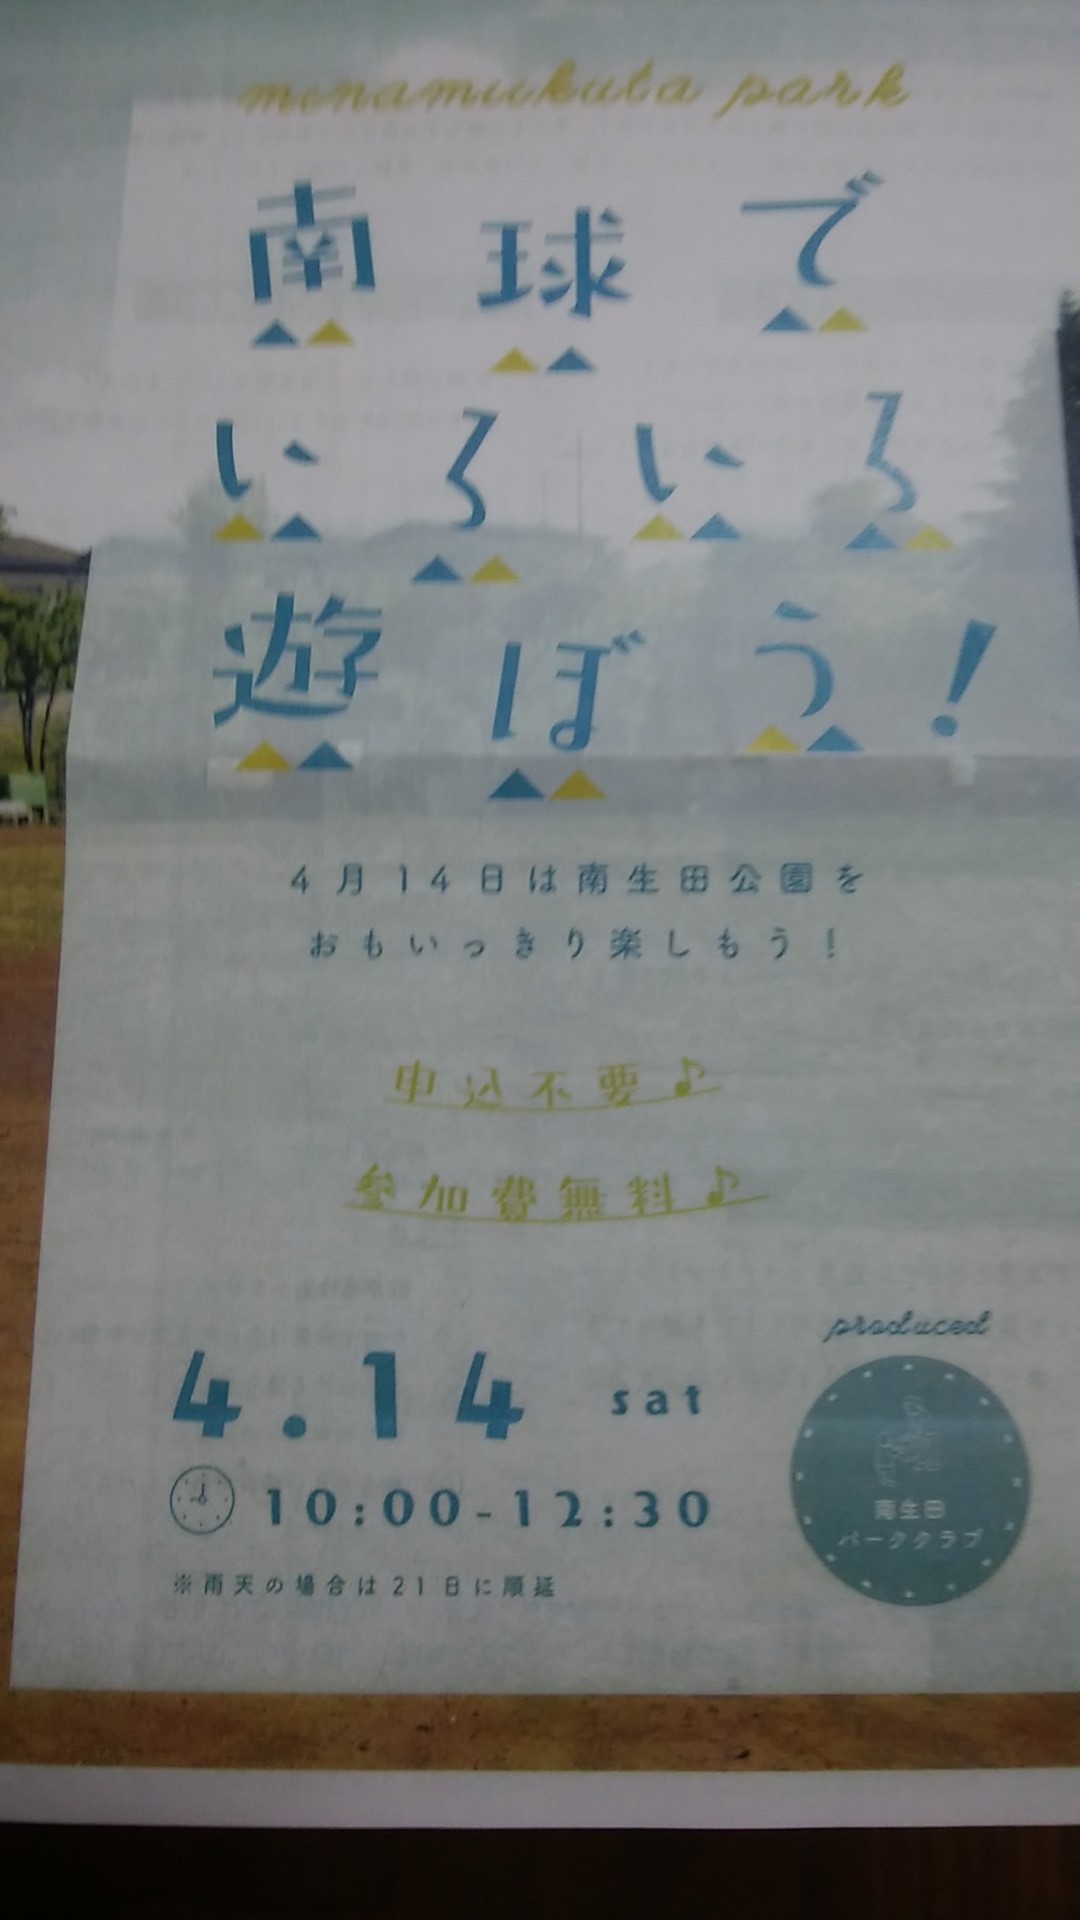 minamiikuta park
南球で
いろいろ
遊ぼう!
4月14日は南生田公園を
おもいっきり楽しもう!
申込不要♪
参加費無料♪
produced
4.14 sat
10:00-12:30
南生田
パーククラブ
※雨天の場合は21日に順延